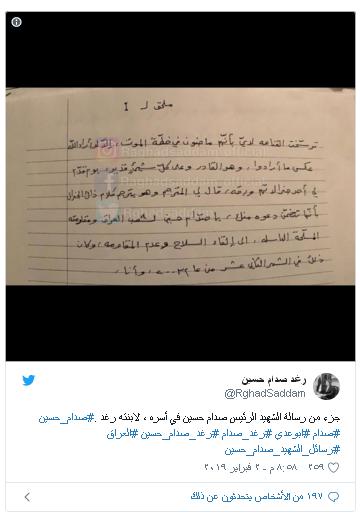 ملحق لـ I
ترسخت القناعة لديّ بأنهم ماضون في خطة الموت، إلّا ان أراد الله
عكس ما أرادوا، وهو القادر وعلى كلّ شيءٍ قدير، يوم تقدّم
لي أحد جنرالاتهم وورقة، قال لي المترجم وهو يترجم كلام ذاك الجنرال
بأنها تتضمن دعوة مثلي، يا صدام حسين لشعب العراق ومقاومته
المسلحة الباسلة، الى إلقاء السلاح وعدم المقاومة، وكان
ذلك في الشهر الثاني عشر من عام ٢٠٠٣، وأنا،
Raghadsaddamofficial
رغد صدام حسين
@RghadSaddam
جزء من رسالة الشهيد الرئيس صدام حسين في أسره ، لابنته رغد .#صدام_حسين
#صدام #ابوعدي #رغد_صدام #رغد_صدام_حسين #العراق
#رسائل_الشهيد_صدام_حسين
٢٥٩ ٨:٥٨ م - ٢ فبراير ٢٠١٩
١٩٧ من الأشخاص يتحدثون عن ذلك